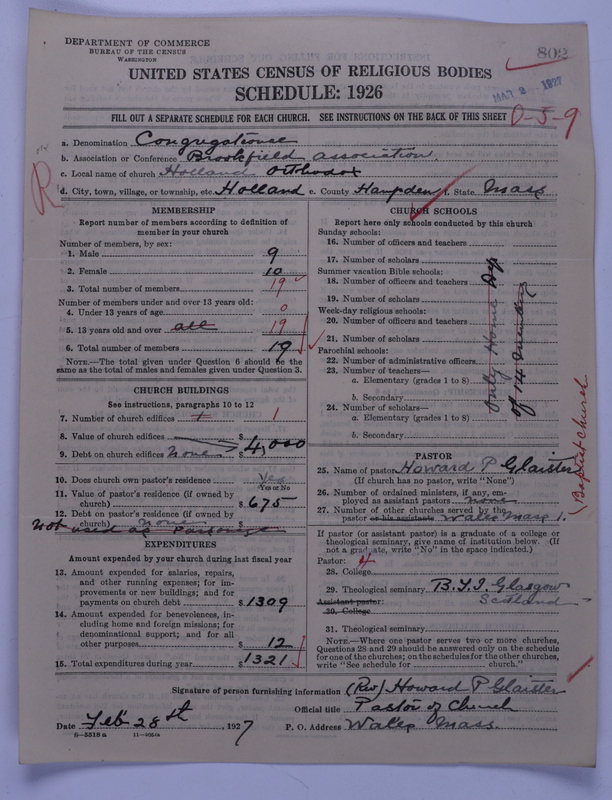 DEPARTMENT OF COMMERCE
BUREAU OF THE CENSUS
WASHINGTON
802
UNITED STATES CENSUS OF RELIGIOUS BODIES
SCHEDULE: 1926
MAR 2 1927
FILL OUT A SEPARATE SCHEDULE FOR EACH CHURCH. SEE INSTRUCTIONS ON THE BACK OF THIS SHEET
0-5-9
R
a. Denomination Congregational
b. Association or Conference Brookfield association
c. Local name of church Holland Orthodox
d. City, town, village, or township, etc. Holland e. County Hampden f. State Mass
MEMBERSHIP
Report number of members according to definition of
member in your church
Number of members, by sex:
1. Male 9
2. Female 10
3. Total number of members 19
Number of members under and over 13 years old:
4. Under 13 years of age 0
5. 13 years old and over all 19
6. Total number of members 19
NOTE.—The total given under Question 6 should be the
same as the total of males and females given under Question 3.
CHURCH BUILDINGS
See instructions, paragraphs 10 to 12
7. Number of church edifices 1 1
8. Value of church edifices $ 4,000
9. Debt on church edifices none $
10. Does church own pastor's residence Yes
Yes or No
11. Value of pastor's residence (if owned by
church) $ 675
12. Debt on pastor's residence (if owned by
church) none $
Not used as Parsonage
EXPENDITURES
Amount expended by your church during last fiscal year
13. Amount expended for salaries, repairs,
and other running expenses; for im-
provements or new buildings; and for
payments on church debt $ 1309
14. Amount expended for benevolences, in-
cluding home and foreign missions; for
denominational support; and for all
other purposes $ 12
15. Total expenditures during year $ 1321
CHURCH SCHOOLS
Report here only schools conducted by this church
Sunday schools:
16. Number of officers and teachers
17. Number of scholars
Summer vacation Bible schools:
18. Number of officers and teachers
19. Number of scholars
Week-day religious schools:
20. Number of officers and teachers
21. Number of scholars
Parochial schools:
22. Number of administrative officers
23. Number of teachers—
a. Elementary (grades 1 to 8)
b. Secondary
24. Number of scholars—
a. Elementary (grades 1 to 8)
b. Secondary
only Home Dep
of 14 members
PASTOR
25. Name of pastor Howard P Glaister
(If church has no pastor, write "None")
26. Number of ordained ministers, if any, em-
ployed as assistant pastors none
27. Number of other churches served by the
pastor or his assistants Wales Mass 1.
(Baptist Church)
If pastor (or assistant pastor) is a graduate of a college or
theological seminary, give name of institution below. (If
not a graduate, write "No" in the space indicated.)
Pastor: 4
28. College
29. Theological seminary B.T.I. Glasgow
Scotland
Assistant pastor:
30. College
31. Theological seminary
NOTE.—Where one pastor serves two or more churches,
Questions 28 and 29 should be answered only on the schedule
for one of the churches; on the schedules for the other churches,
write "See schedule for church."
Signature of person furnishing information (Rev) Howard P Glaister
Official title Pastor of Church
Date Feb 28st, 1927 P. O. Address Wales Mass.
8—5518 a